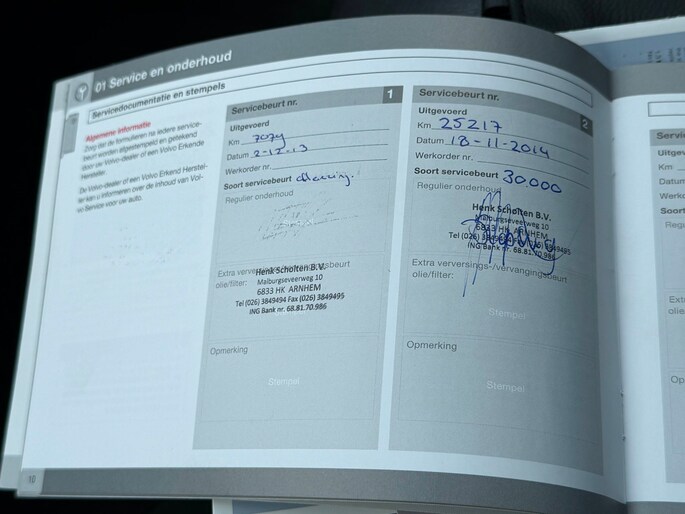 01 Service en onderhoud
Servicedocumentatie en stempels
Algemene informatie
Zorg dat de formulieren na iedere service-
beurt worden afgestempeld en getekend
door uw Volvo-dealer of een Volvo Erkende
Hersteller.
De Volvo-dealer of een Volvo Erkend Herstel-
ler kan u informeren over de inhoud van Vol-
vo Service voor uw auto.
Servicebeurt nr. 1
Uitgevoerd
Km
Datum 2-12-13
Werkorder nr.
Soort servicebeurt
Regulier onderhoud
Extra verversings-/vervangingsbeurt
olie/filter:
Henk Scholten B.V.
Malburgseveerweg 10
6833 HK ARNHEM
Tel (026) 3849494 Fax (026) 3849495
ING Bank nr. 68.81.70.986
Opmerking
Stempel
Servicebeurt nr. 2
Uitgevoerd
Km 25217
Datum 18-11-2014
Werkorder nr.
Soort servicebeurt 30.000
Regulier onderhoud
Henk Scholten B.V.
Malburgseveerweg 10
6833 HK ARNHEM
Tel (026) 3849494 Fax (026) 3849495
ING Bank nr. 68.81.70.986
Extra verversings-/vervangingsbeurt
olie/filter:
Stempel
Opmerking
Stempel
10